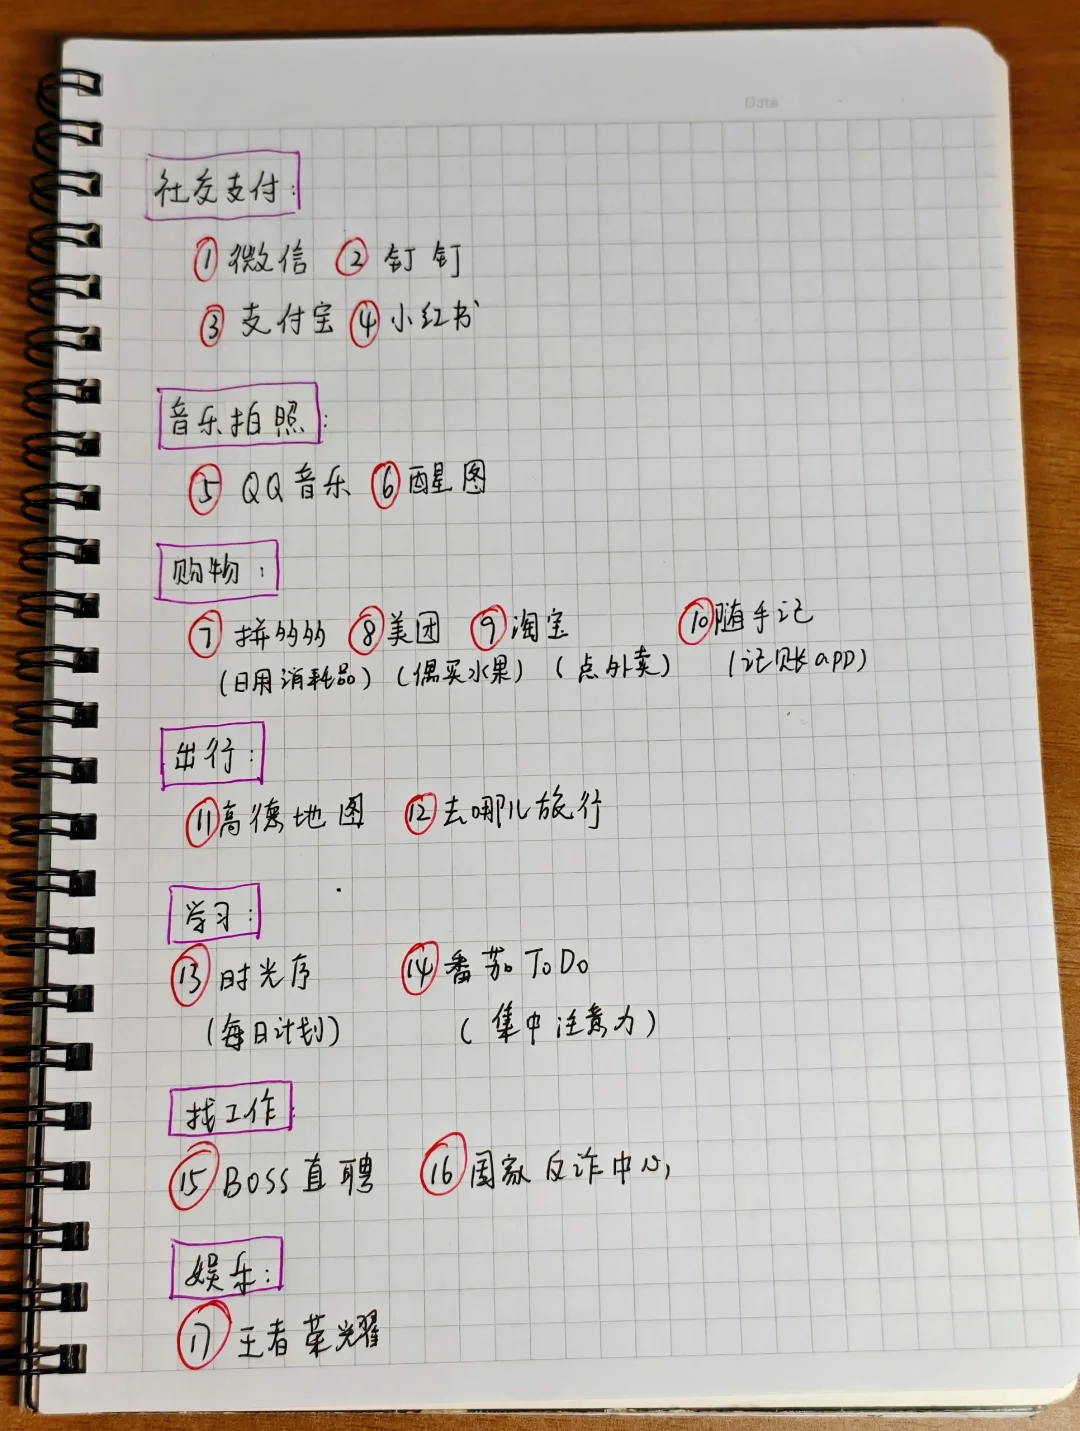 Date
社交支付:
①微信 ②钉钉
③支付宝 ④小红书
音乐拍照:
⑤QQ音乐 ⑥醒图
购物:
⑦拼多多 ⑧美团 ⑨淘宝 ⑩随手记
(日用消耗品) (偶买水果) (点外卖) (记账app)
出行:
⑪高德地图 ⑫去哪儿旅行
学习:
⑬时光序 ⑭番茄ToDo
(每日计划) (集中注意力)
找工作:
⑮BOSS直聘 ⑯国家反诈中心
娱乐:
⑰王者荣耀